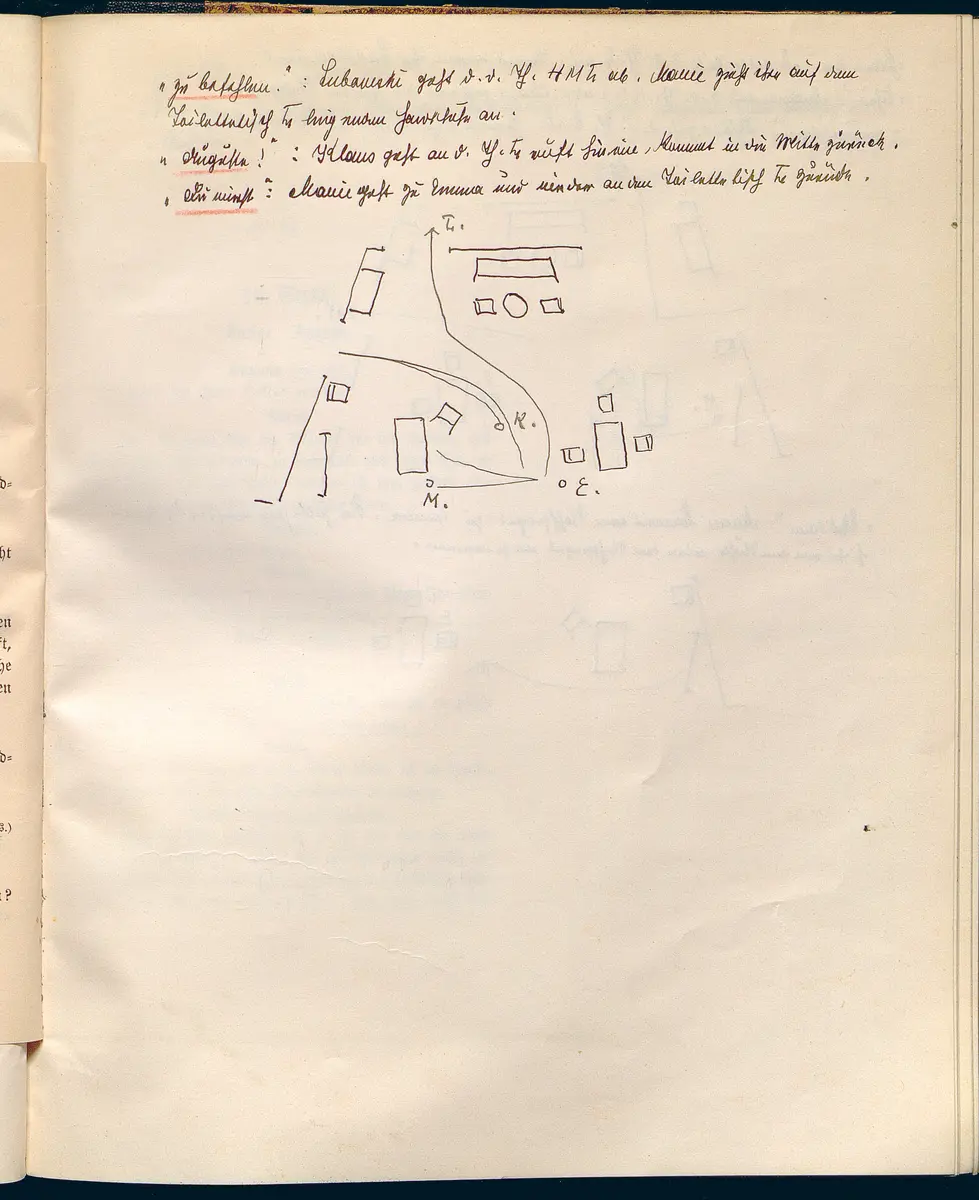 „zu befehlen.“: Lubowski geht d. d. Th. H M L ab. Marie zieht ihre auf dem
Toilettetisch L liegenden Handschuhe an.
„Auguste!“: Klaus geht an d. Th. L ruft hinein, kommt in die Mitte zurück.
„Du mirst“: Marie geht zu Emma und wieder an den Toilettetisch L zurück.
L.
K.
E.
M.
d=
ht
en
ft,
he
en
d=
s.)
?